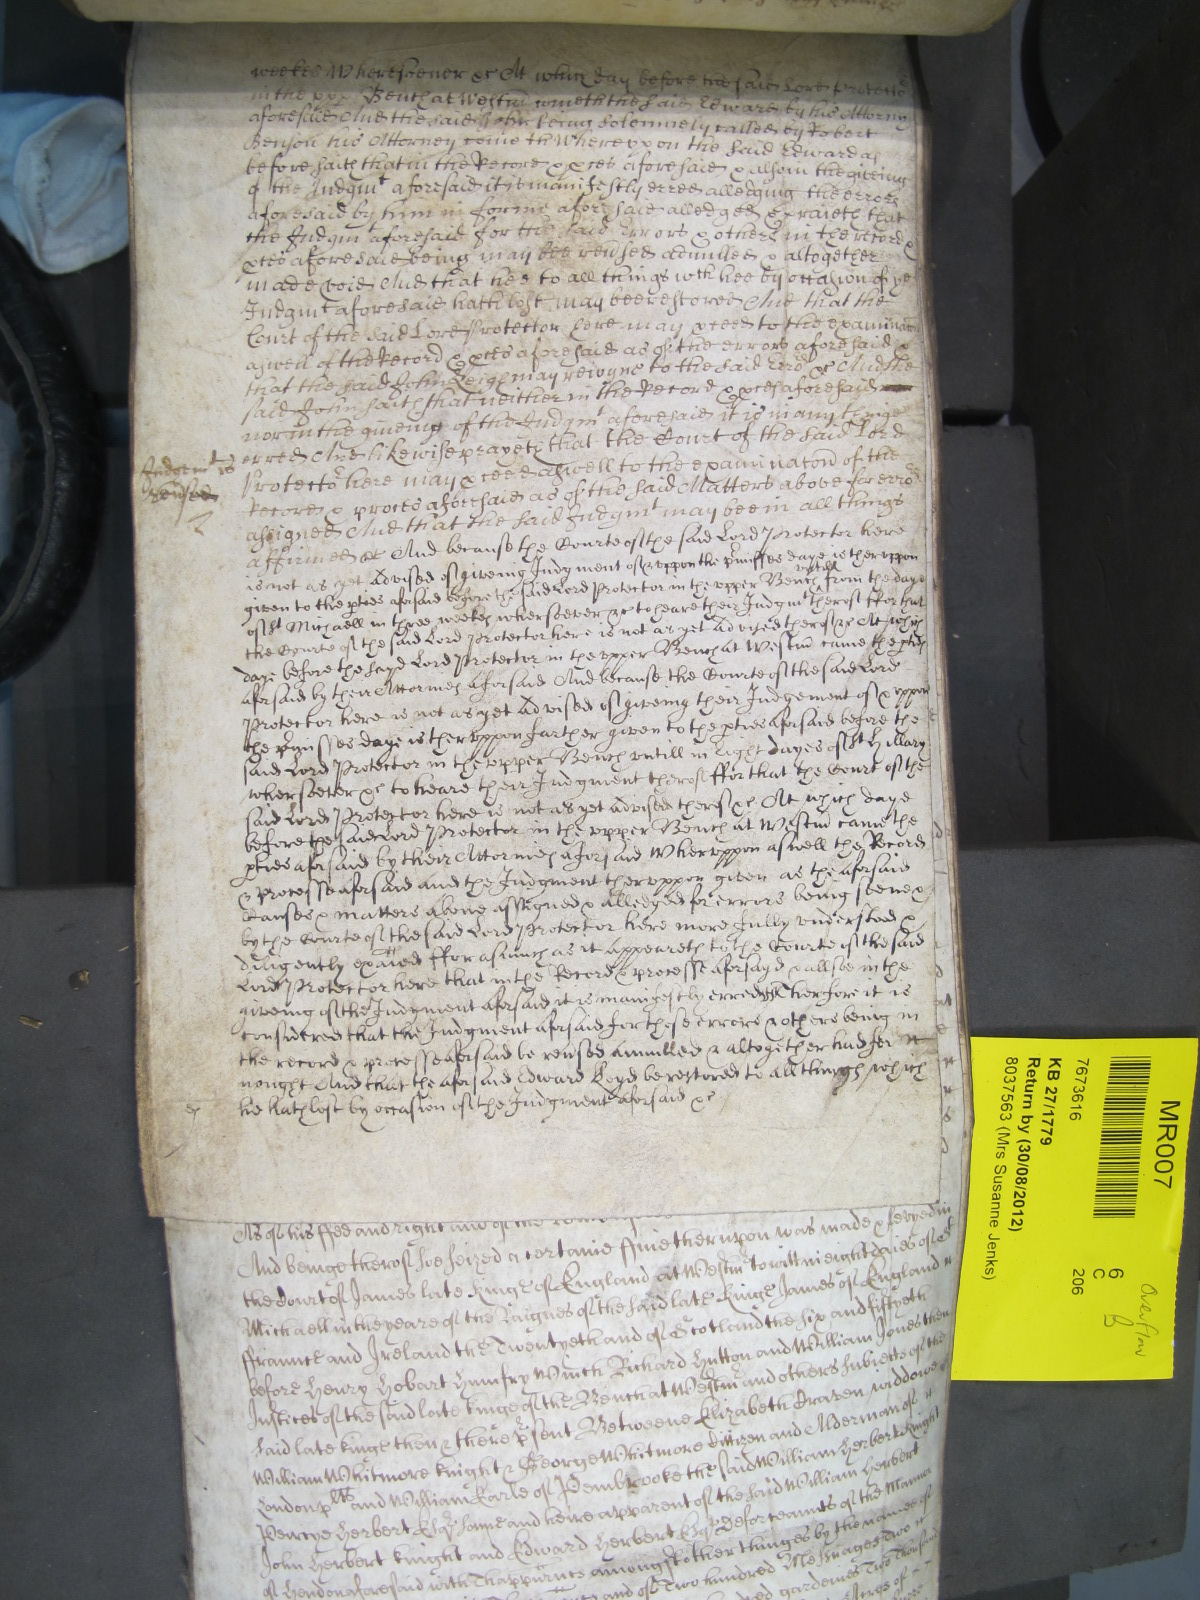 weekes Wheresoever &c At which day before the said Lord Protector
in the upp Bench at Westm̃ cometh the said Edward by his Attorny
aforesaid And the said John being solemnely called by Robert
Benson his Attorney cometh Whereupon the said Edward as
before saith that in the Record & p̱ces aforesaid & alsoe in the giveing
of the Judgmt aforesaid it is manifestly erred alledging the errors
aforesaid by him in forme aforesaid alledged & praieth that
the Judgmt aforesaid for the said Errors & others in the record &
p̱ces aforesaid being may bee rev̄sed adnulled & altogether
made void And that hee to all things wch hee by occasion of ye
Judgmt aforesaid hath lost may bee restored And that the
Court of the said Lord Protector here may p̱ceed to the examinac̃on
aswell of the Record & p̱ces aforesaid as of the errors aforesaid &
that the said John Leigh may rejoyne to the said Errors &c And the
said John saith that neither in the Record & p̱ces aforesaid
nor in the giveing of the Judgmt aforesaid it is in any thinge
erred And likewise prayeth that the Court of the said Lord
Protector here may p̱ceed aswell to the examinac̃on of the
Record & proces aforesaid as of the said Matters above for error
assigned And that the said Judgmt may bee in all things
affirmed &c And because the Courte of the said Lord Protector here
is not as yet Advised of giveing Judgment of & uppon the p̱misses daye is theruppon
given to the p̱ties aforsaid before the said Lord Protector in the upper Bench untill from the daye
of St Michaell in three weekes whersoever &c to heare their Judgmt therof ffor that
the Courte of the said Lord Protector here is not as yet Advised therof &c At which
daye before the sayd Lord Protector in the upper Bench at Westm̃ came the p̱ties
aforsaid by their Attornies aforsaid And because the Courte of the said Lord
Protector here is not as yet Advised of giveing their Judgement of & uppon
the p̱misses daye is theruppon farther given to the p̱ties aforsaid before the
said Lord Protector in the upper Bench untill in Eight dayes of St Hillary
whersoever &c to heare their Judgment therof ffor that the Court of the
said Lord Protector here is not as yet advised therof &c At which daye
before the said Lord Protector in the upper Bench at Westm̃ came the
p̱ties aforsaid by their Attornies aforsaid Wheruppon aswell the Record
& Processe aforsaid and the Judgment theruppon given as the aforsaid
Causes & matters above assigned & alledged for errors being seene &
by the Courte of the said Lord Protector here more fully understood &
diligently exãied ffor asmuch as it Appeareth to the Courte of the said
Lord Protector here that in the Record & processe aforsayd & allsoe in the
giveing of the Judgment aforsaid it is manifestly erred Therfore it is
considered that the Judgment aforsaid for those errors & others being in
the record & processe aforsaid be rev̄sed annulled & altogether had for
nought And that the aforsaid Edward Loyd be restored to all things which
he hath lost by occasion of the Judgment aforsaid &c
Judgemt is
rev̄sed
As of his ffee and right and of the
And beinge therof soe seized a certaine ffine therupon was made & levyed in
the Court of James late Kinge of England at Westmr to witt in eight daies of St
Michaell in the yeare of the Raignes of the said late Kinge James of England
ffrannce and Ireland the Twentyeth and of Scotland the six and fiftyeth
before Henry Hobart Humfry Winch Richard Hutton and William Jones then
Justices of the said late kinge of the Bench at Westmr and others Subiects of the
said late kinge then & there p̱sent Betweene Elizabeth Craven widdowe
William Whitmore knight & George Whitmore Cittizen and Alderman of
London plts and William Earle of Pembrooke the said William Herbert Knight
Percye Herbert Esqr sonne and heire apparent of the said William Herbert
John Herbert knight and Edward Herbert Esqr Deforceannts of the Mannor
of Hendon aforesaid with Thappurtn̄ces amongst other thinges by the names of
and of Two hundred Messuages Two
gardens Two Thousand
MR007
7673616
6
C
206
KB 27/1779
Return by (30/08/2012)
8037563 (Mrs Susanne Jenks)
Overflow